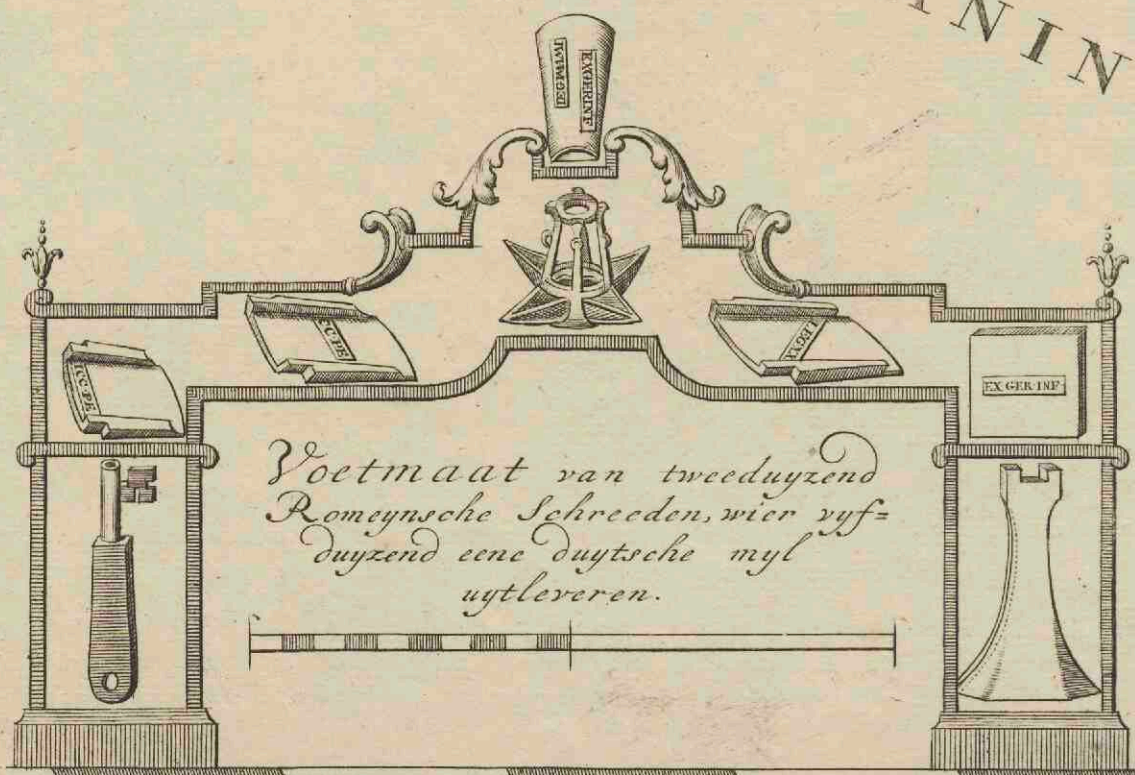 NIN
EXGERINF
FC·PE
LEGXX
EX GER INF
Voetmaat van tweeduyzend
Romeynsche Schreeden, wier vyf=
duyzend eene duytsche myl
uytleveren.